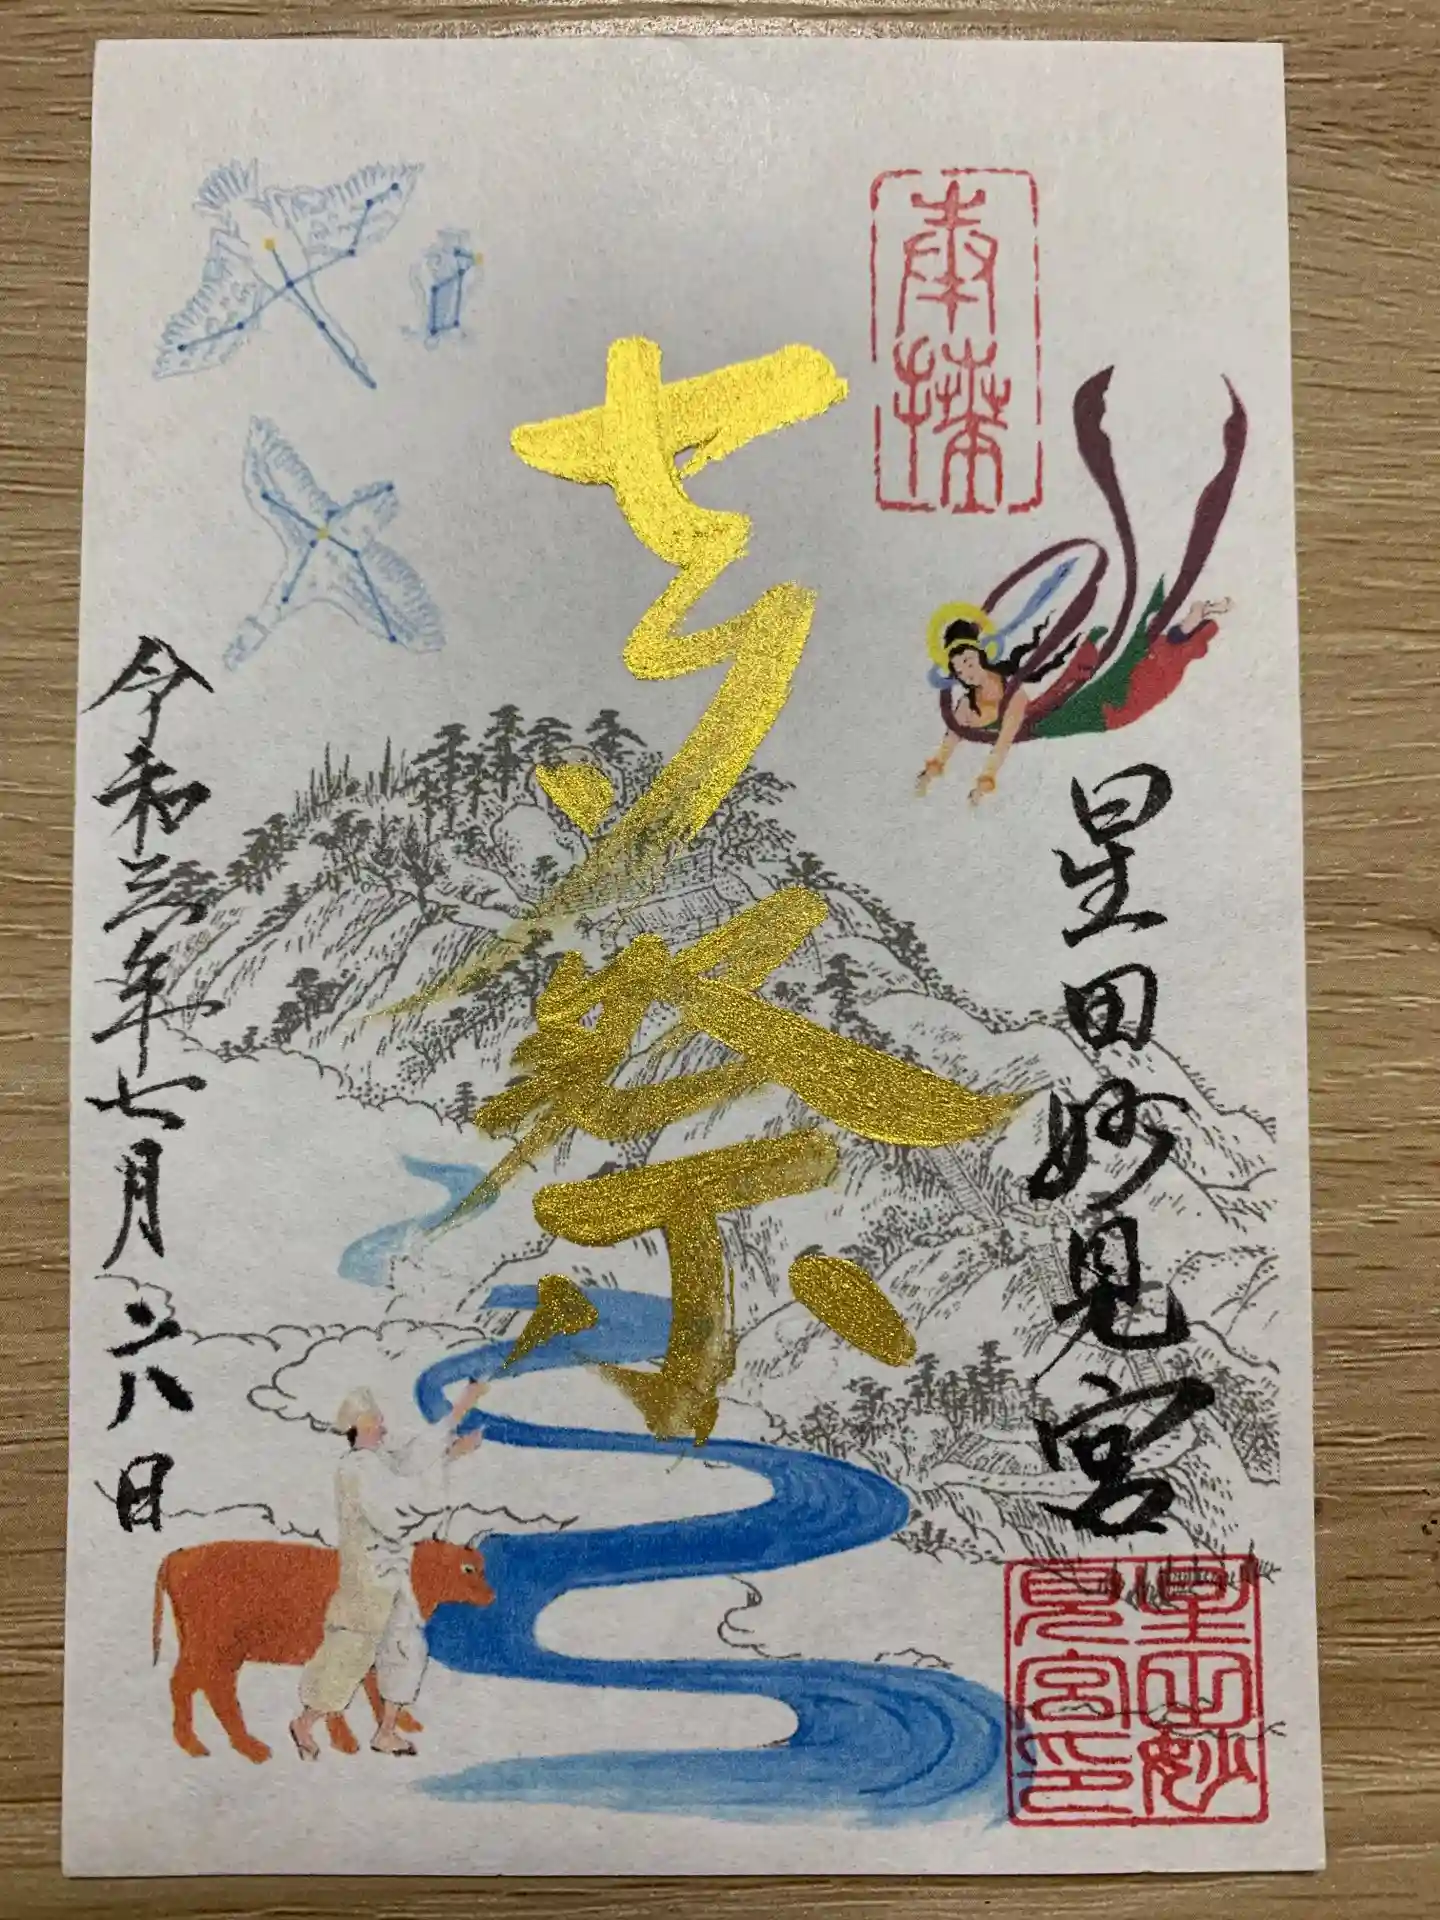 奉拝
星田妙見宮
星田妙
見宮印
七夕祭
令和三年七月二八日